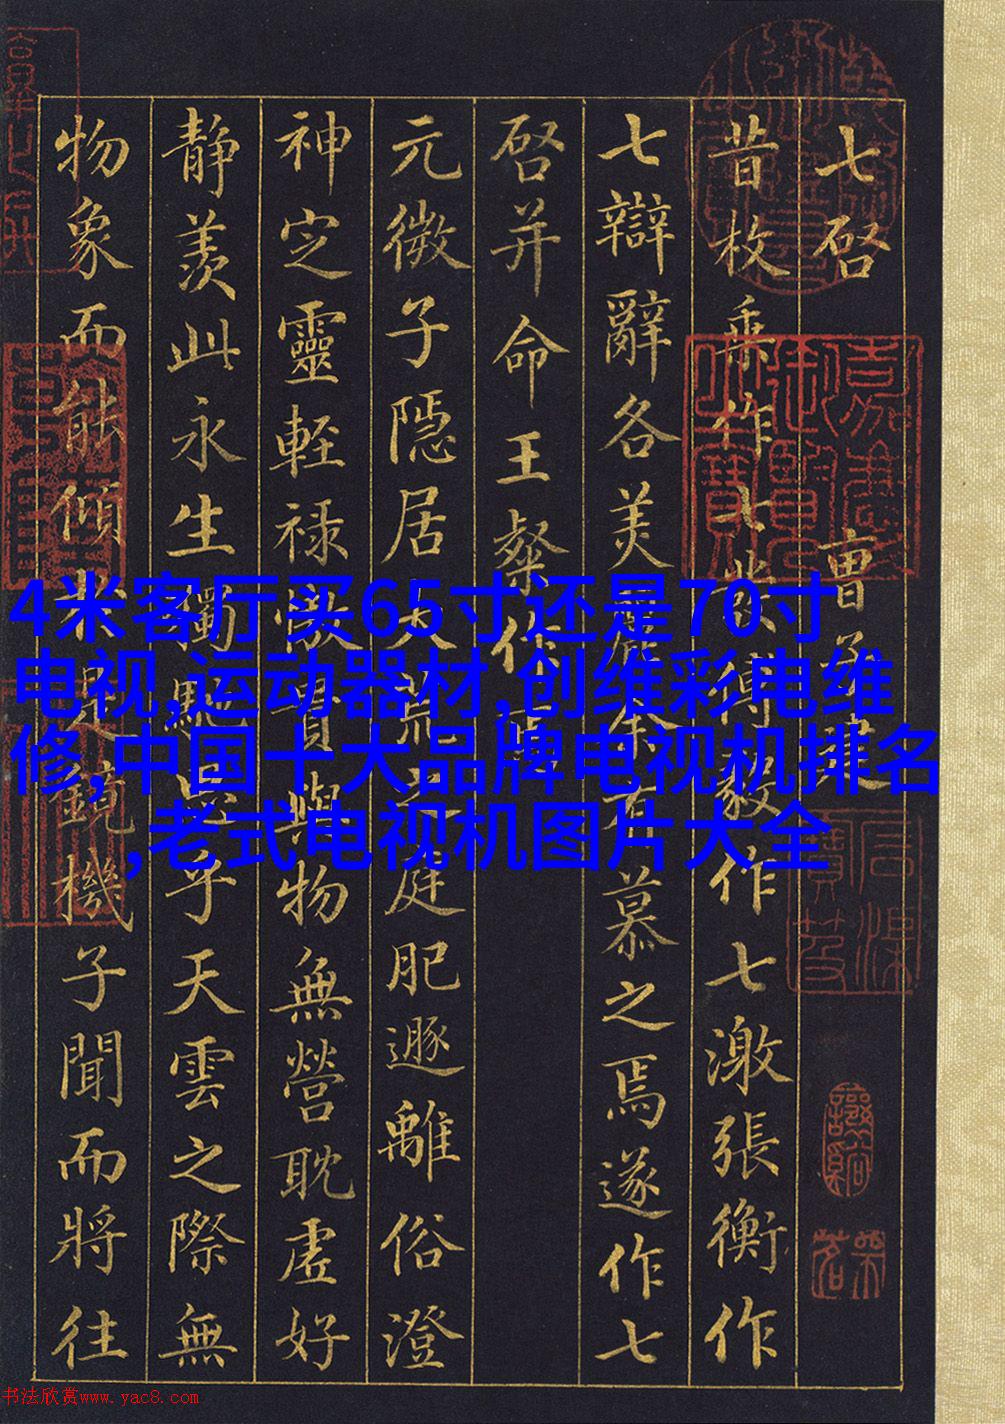 七啓 曹子建
昔枚乘作七發傅毅作七激張衡作
七辯辭各美麗余有慕之焉遂作七
啓并命王粲作焉
元微子隱居大荒之庭肥遯離俗澄
神定靈輕祿傲貴與物無營耽虛好
靜羨此永生獨馳思乎天雲之際無
物象而能傾於是鏡機子聞而將往
嘉慶御覽之寶
4米客厅买65寸还是70寸
电视,运动器材,创维彩电维
修,中国十大品牌电视机排名
,老式电视机图片大全
书法欣赏www.yac8.com